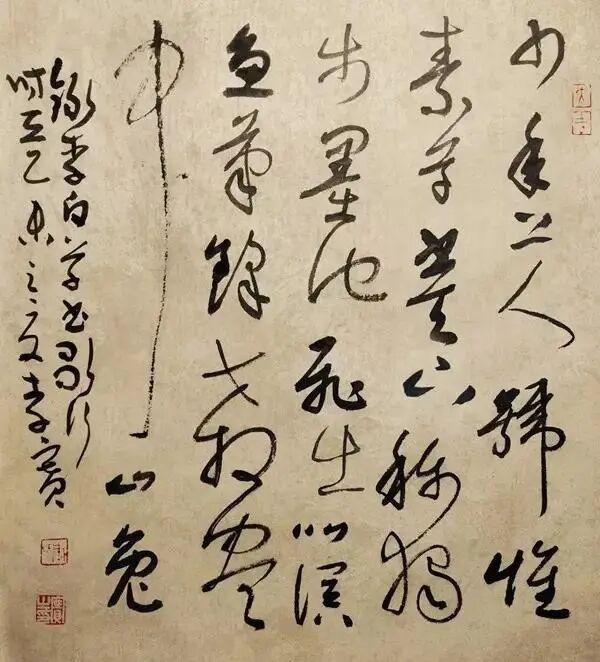 少年上人號懷
素草書天下稱獨
步墨池飛出北溟
魚筆鋒殺盡
中山兔
錄李白草書歌行
時在乙未之夏李賓